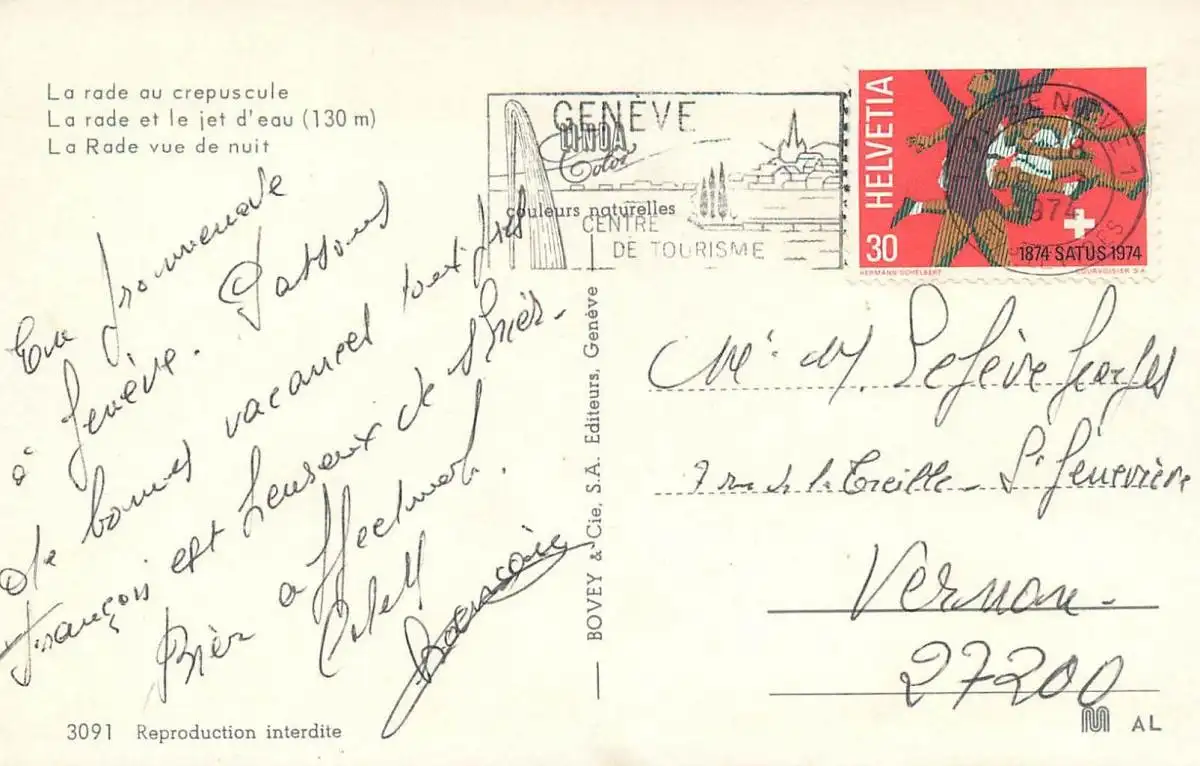 La rade au crepuscule
La rade et le jet d'eau (130 m)
La Rade vue de nuit
En promenade
à Genève. Passons
de bonnes vacances
François est heureux de skier.
Bien affectueux
GENÈVE
LINDA
Color
couleurs naturelles
CENTRE
DE TOURISME
HELVETIA
30
1874 SATUS 1974
HERMANN SCHELBERT
COURVOISIER S.A.
GENÈVE 1
1974
BOVEY & Cie, S.A. Editeurs, Genève
Mr M. Lefèvre Georges
7 rue de la Treille - St Geneviève
Vernon -
27200
3091 Reproduction interdite
M AL